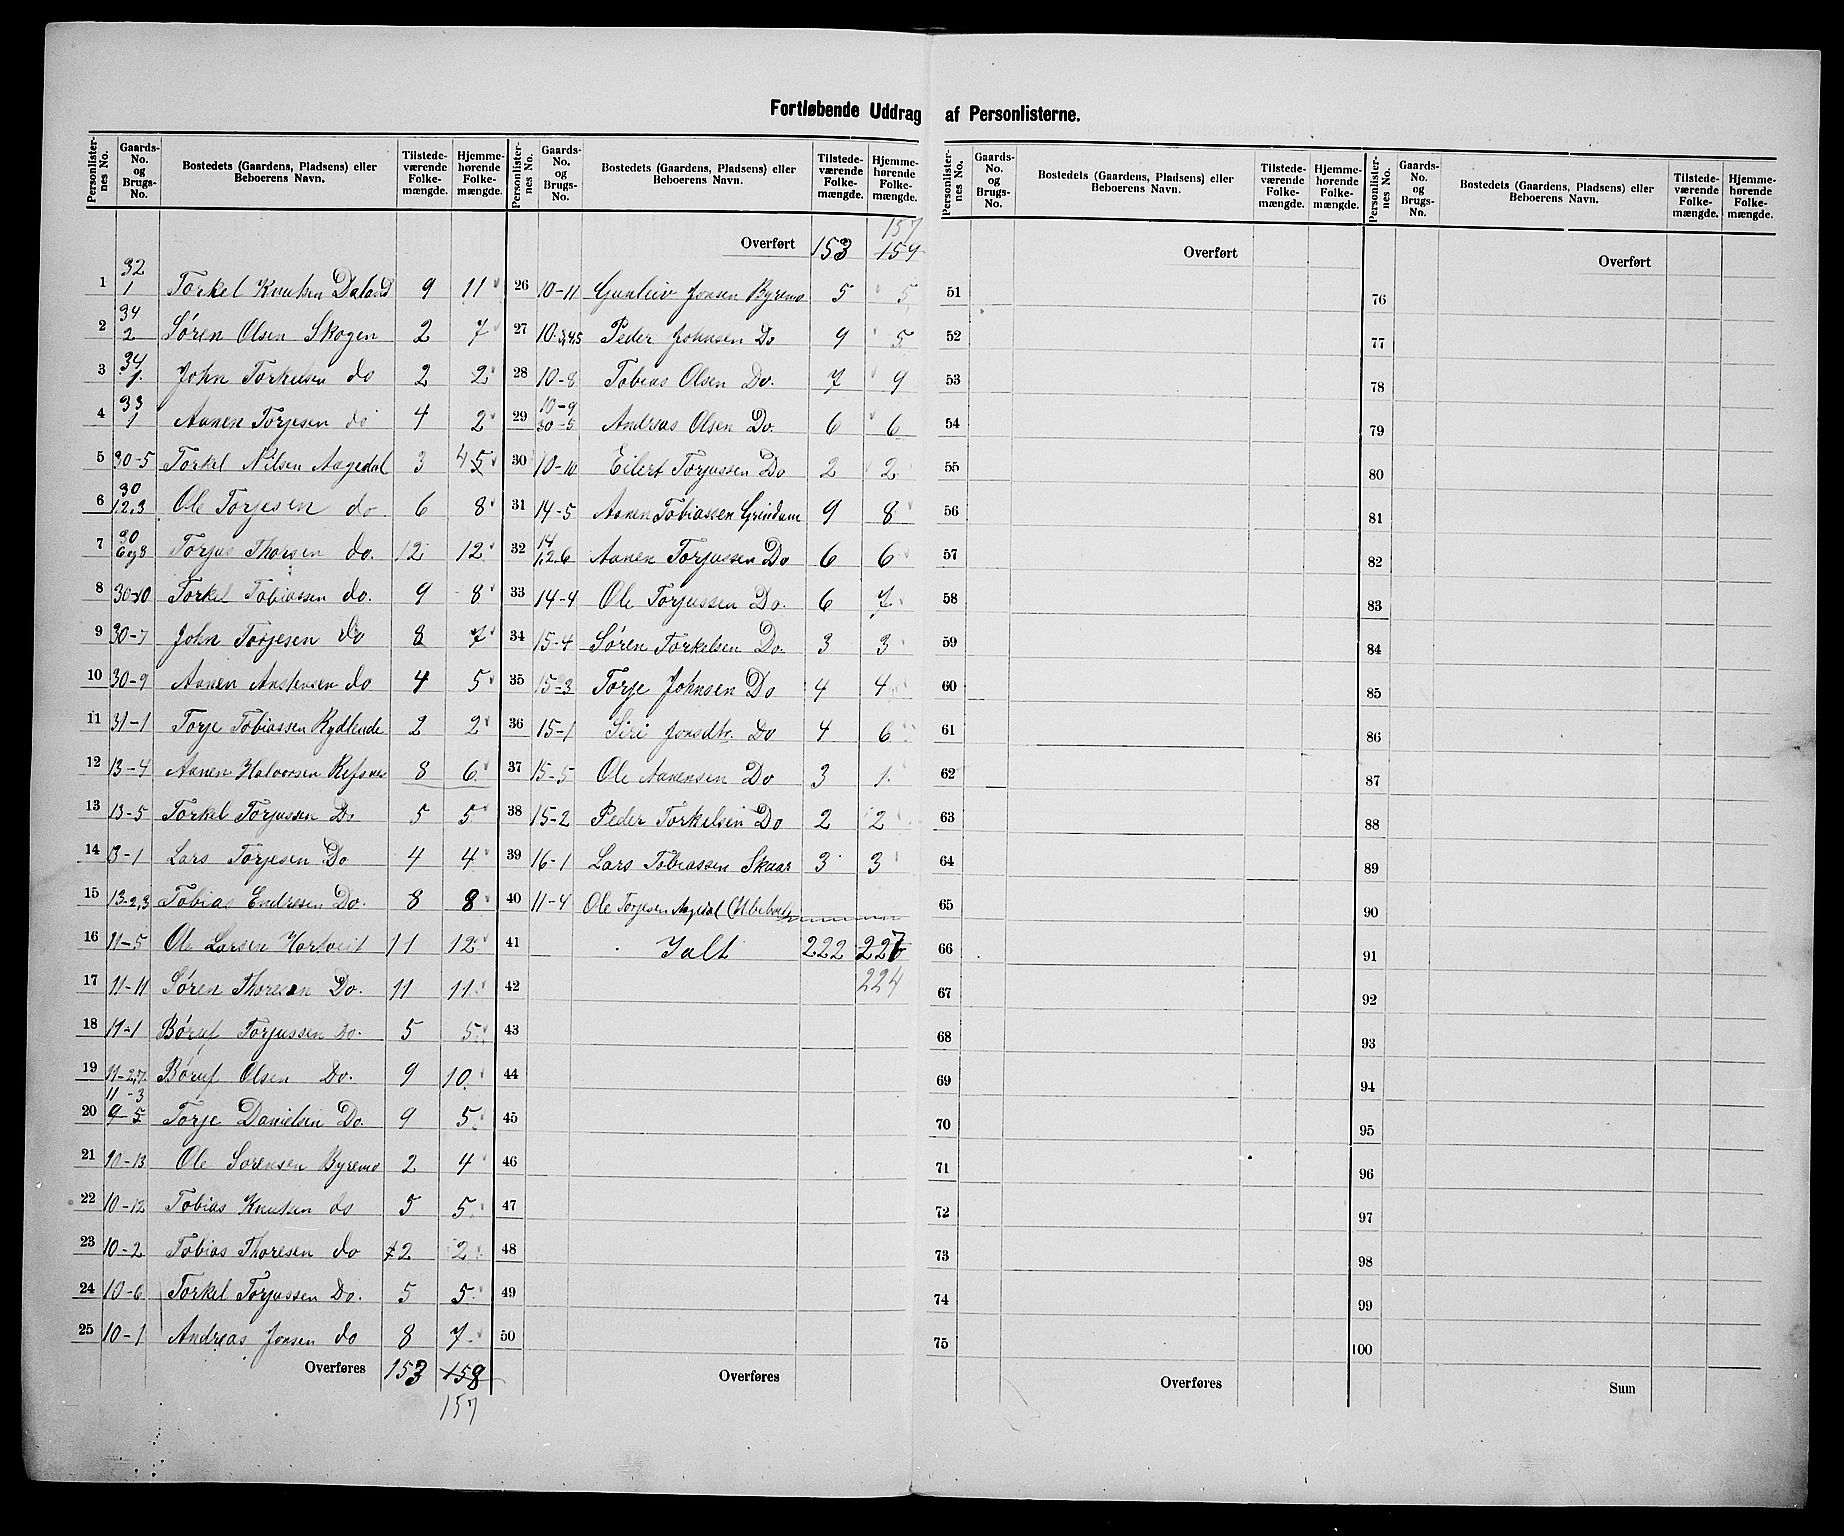 Fortløbende Uddrag af Personlisterne.
Personlister-nes No. | Gaards-No. og Brugs-No. | Bostedets (Gaardens, Pladsens) eller Beboerens Navn. | Tilstede-værende Folke-mængde. | Hjemme-hørende Folke-mængde.
1 | 32 1 | Torkel Knutsen Daland | 9 | 11
2 | 34 2 | Søren Olsen Skogen | 2 | 7
3 | 34 1 | John Torkelsen do | 2 | 2
4 | 33 1 | Aanen Torjesen do | 4 | 2
5 | 30-5 | Torkel Nilsen Aagedal | 3 | 4 5
6 | 30 1,2,3 | Ole Torjesen do | 6 | 8
7 | 30 6og8 | Torjus Thorsen do. | 12 | 12
8 | 30-10 | Torkel Tobiassen do. | 9 | 8
9 | 30-7 | John Torjesen do | 8 | 7
10 | 30-9 | Aanen Anstensen do | 4 | 5
11 | 31-1 | Torje Tobiassen Rydlende | 2 | 2
12 | 13-4 | Aanen Halvorsen Refsnes | 8 | 6
13 | 13-5 | Torkel Torjussen Do | 5 | 5
14 | 13-1 | Lars Torjesen Do | 4 | 4
15 | 13-2,3 | Tobias Endresen Do. | 8 | 8
16 | 11-5 | Ole Larsen Hortveit | 11 | 12
17 | 11-11 | Søren Thoresen Do. | 11 | 11
18 | 11-1 | Børuf Torjussen Do. | 5 | 5
19 | 11-2,7 | Børuf Olsen Do. | 9 | 10
20 | 11-3 9-5 | Torje Danielsen Do. | 9 | 5
21 | 10-13 | Ole Sørensen Byremo | 2 | 4
22 | 10-12 | Tobias Knutsen do | 5 | 5
23 | 10-2 | Tobias Thoresen do | 2 | 2
24 | 10-6 | Torkel Torjussen Do. | 5 | 5
25 | 10-1 | Andreas Jonsen do | 8 | 7
Overføres | 153 | 158
157
Personlister-nes No. | Gaards-No. og Brugs-No. | Bostedets (Gaardens, Pladsens) eller Beboerens Navn. | Tilstede-værende Folke-mængde. | Hjemme-hørende Folke-mængde.
157
Overført | 153 | 154
26 | 10-11 | Gunleiv Jonsen Byremo | 5 | 5
27 | 10-3,4,5 | Peder Johnsen Do | 9 | 5
28 | 10-8 | Tobias Olsen Do. | 7 | 9
29 | 10-9 30-5 | Andreas Olsen Do. | 6 | 6
30 | 10-10 | Eilert Torjussen Do | 2 | 2
31 | 14-5 | Aanen Tobiassen Grindam | 9 | 8
32 | 14 1,2,6 | Aanen Torjussen Do | 6 | 6
33 | 14-4 | Ole Torjussen Do. | 6 | 7
34 | 15-4 | Søren Torkelsen Do. | 3 | 3
35 | 15-3 | Torje Johnsen Do | 4 | 4
36 | 15-1 | Siri Jonsdtr. Do | 4 | 6
37 | 15-5 | Ole Aanensen Do | 3 | 1
38 | 15-2 | Peder Torkelsen Do | 2 | 2
39 | 16-1 | Lars Tobiassen Skaar | 3 | 3
40 | 11-4 | Ole Torjesen Aagedal (Ubeboet
41 | Ialt | 222 | 227
42 | 224
43
44
45
46
47
48
49
50
Overføres
Personlister-nes No. | Gaards-No. og Brugs-No. | Bostedets (Gaardens, Pladsens) eller Beboerens Navn. | Tilstede-værende Folke-mængde. | Hjemme-hørende Folke-mængde.
Overført
51
52
53
54
55
56
57
58
59
60
61
62
63
64
65
66
67
68
69
70
71
72
73
74
75
Overføres
Personlister-nes No. | Gaards-No. og Brugs-No. | Bostedets (Gaardens, Pladsens) eller Beboerens Navn. | Tilstede-værende Folke-mængde. | Hjemme-hørende Folke-mængde.
Overført
76
77
78
79
80
81
82
83
84
85
86
87
88
89
90
91
92
93
94
95
96
97
98
99
100
Sum